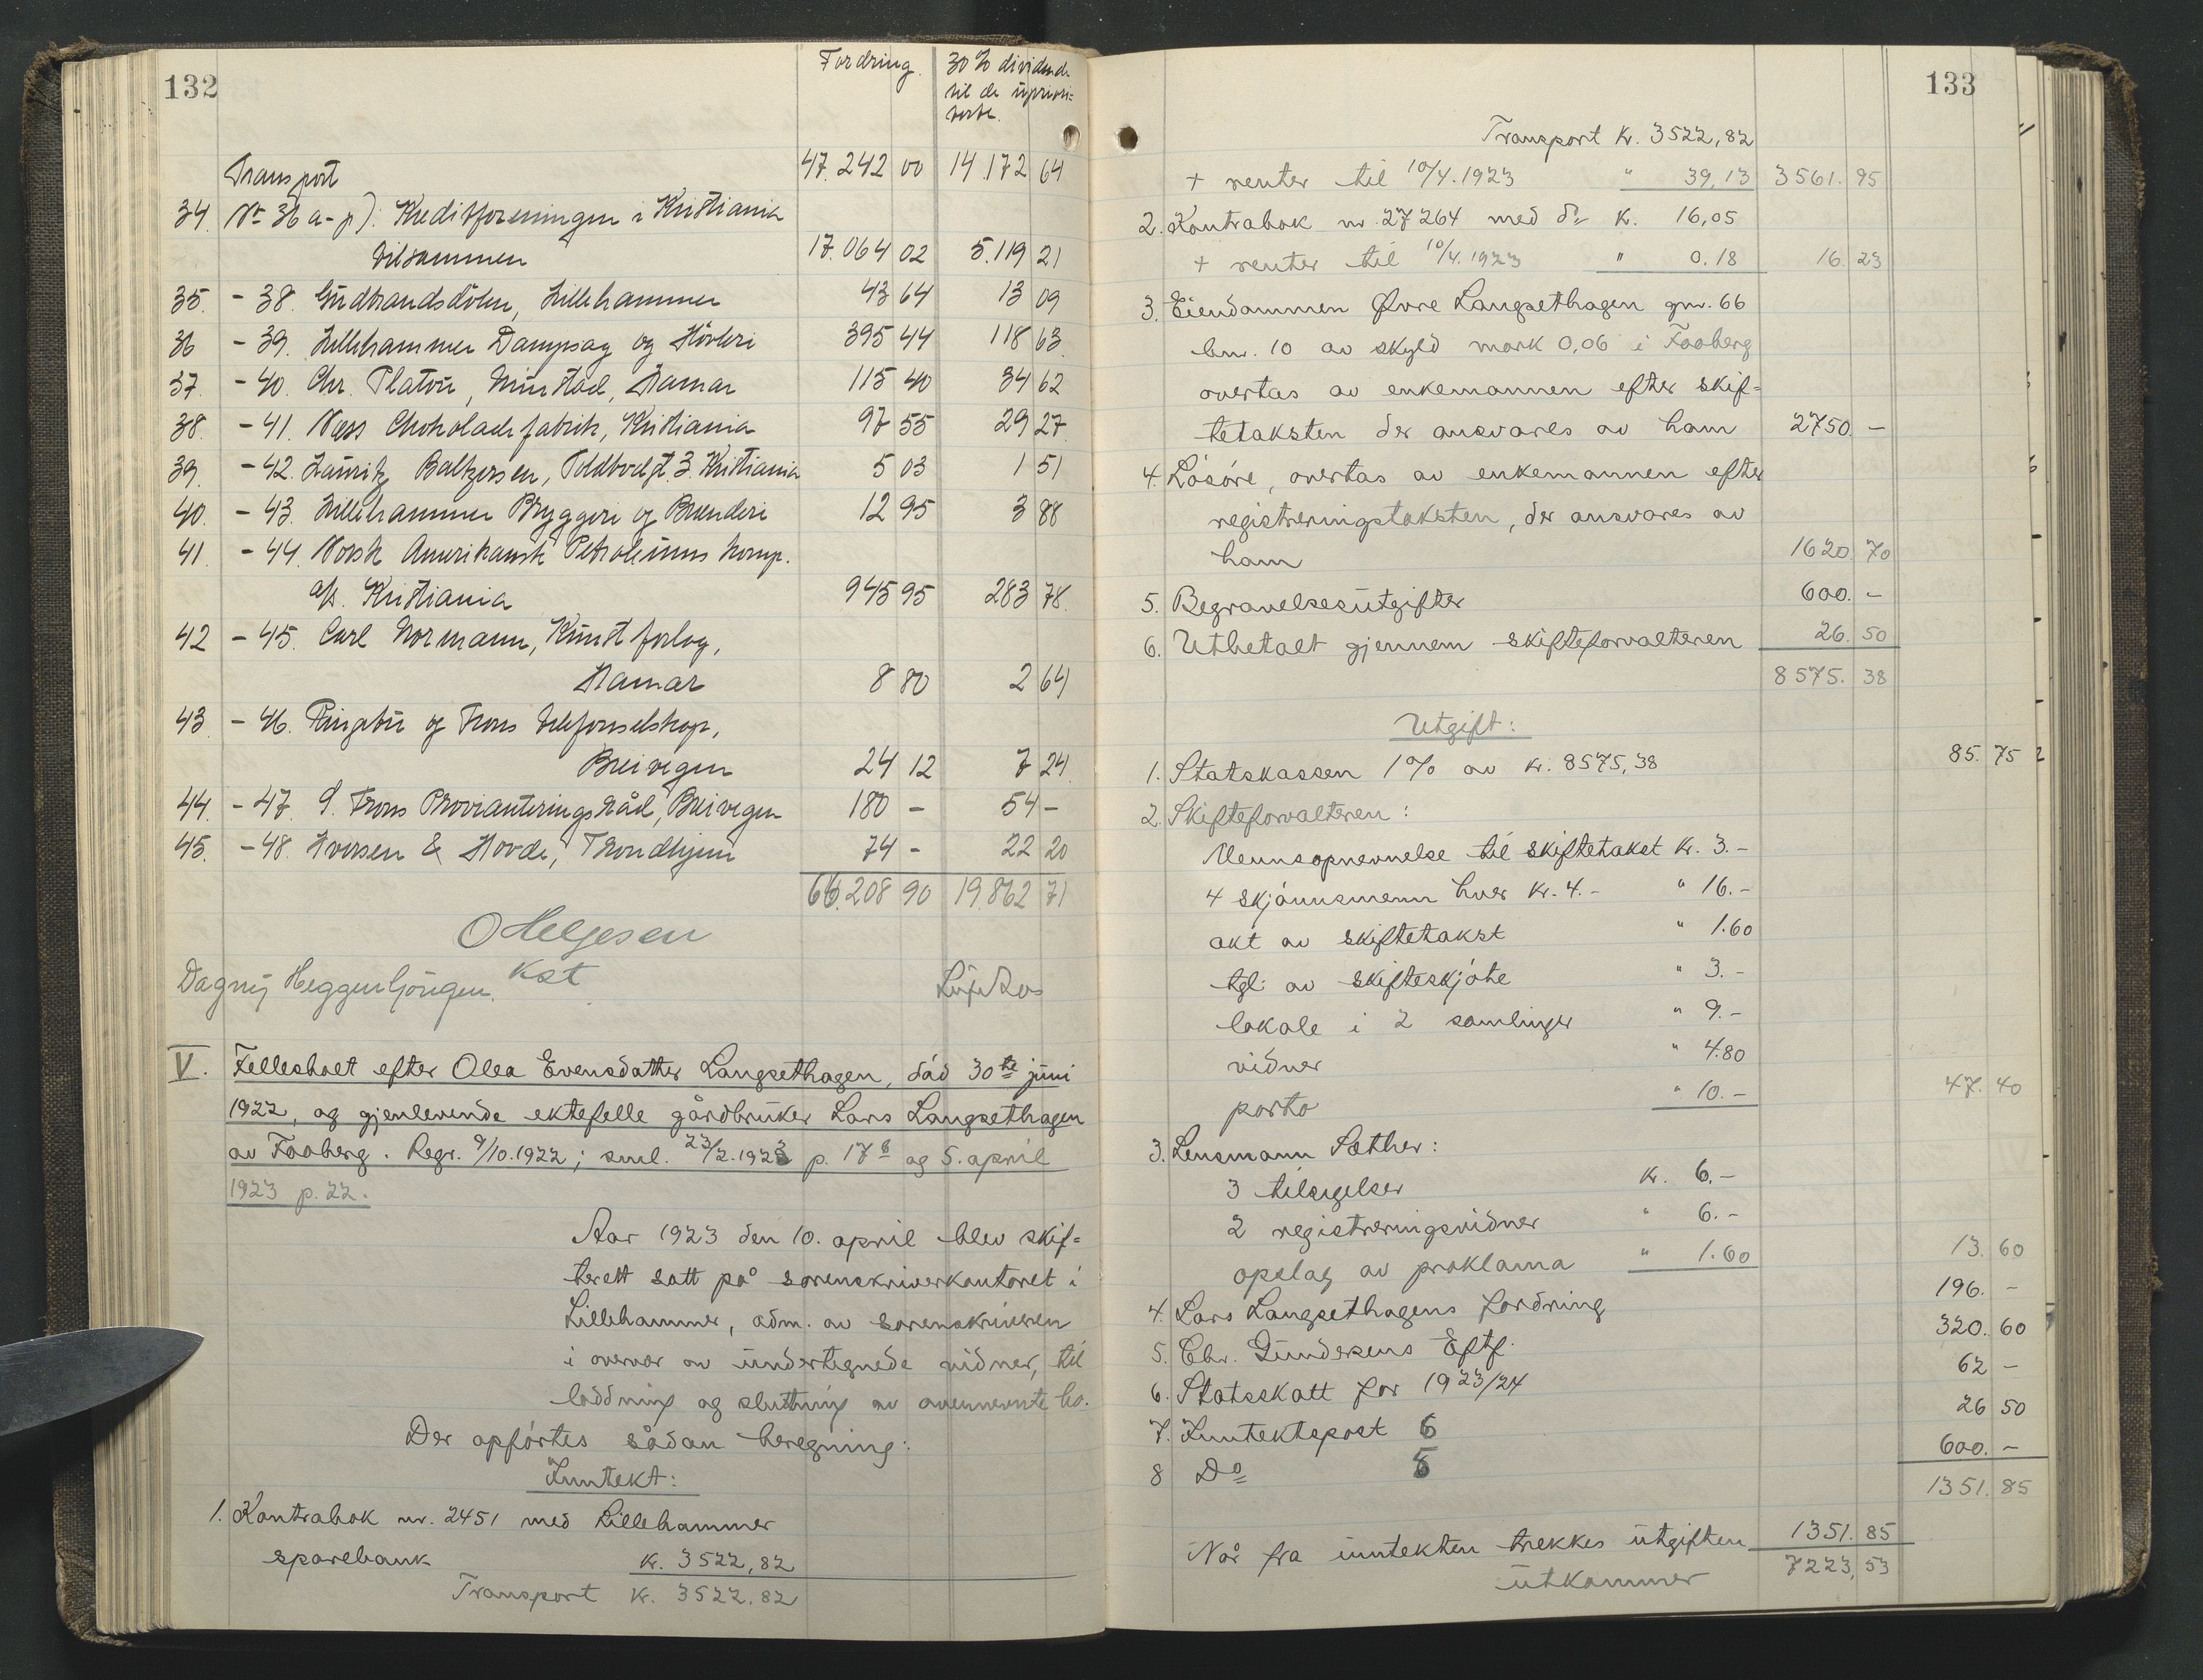 132
Fordring.
30 % dividende
til de upriori=
terte.
Transport 47.242 00 14.172 64
34. Nr 36 a-p): Kreditforeningen i Kristiania
tilsammen 17.064 02 5.119 21
35. - 38. Gudbrandsdölen, Lillehammer 43 64 13 09
36 - 39. Lillehammer Dampsag og Hövleri 395 44 118 63
37. - 40. Chr. Platou, Hamar 115 40 34 62
38. - 41. Næss Chokoladefabrik, Kristiania 97 55 29 27
39. - 42. Lauritz Baltzersen, Toldbodgt. 3. Kristiania 5 03 1 51
40. - 43. Lillehammer Bryggeri og Brenderi 12 95 3 88
41. - 44. Norsk Amerikansk Petroleums komp.
a/s. Kristiania 945 95 283 78.
42 - 45. Carl Normann, Kunstforlag,
Hamar 8 80 2 64
43. - 46. Ringebu og Frons telefonselskap,
Breivegen 24 12 7 24
44. - 47. S. Frons Provianteringsråd, Breivegen 180 - 54 -
45. - 48. Iversen & Hovde, Trondhjem 74 - 22 20
66.208 90 19.862 71
O Helgesen
kst
Dagny Heggenhougen.
V. Fellesboet efter Olea Evensdatter Langsethagen, död 30te juni
1922, og gjenlevende ektefelle gårdbruker Lars Langsethagen
av Faaberg. Regr. 9/10.1922; sml. 23/2.1923 p. 17b og 5. april
1923 p. 22.
Aar 1923 den 10. april blev skif=
terett satt på sorenskriverkontoret i
Lillehammer, adm. av sorenskriveren
i overvær av undertegnede vidner, til
loddning og slutning av ovennevnte bo.
Der opförtes sådan beregning:
Inntekt:
1. Kontrabok nr. 2451 med Lillehammer
sparebank kr. 3522,82
Transport kr. 3522.82
133
Transport kr. 3522,82
+ renter til 10/4.1923 " 39,13 3561. 95
2. Kontrabok nr. 27264 med do kr. 16,05
+ renter til 10/4.1923 " 0.18 16. 23
3. Eiendommen Övre Langsethagen gnr. 66
bnr. 10 av skyld mark 0,06 i Faaberg
overtas av enkemannen efter skif=
tetaksten der ansvares av ham 2750. -
4. Lösöre, overtas av enkemannen efter
registreringstaksten, der ansvares av
ham 1620 70
5. Begravelsesutgifter 600. -
6. Utbetalt gjennem skifteforvalteren 26. 50
8575. 38
Utgift:
1. Statskassen 1% av kr. 8575,38 85. 75
2. Skifteforvalteren:
Mennsopnevnelse til skiftetakst kr. 3.-
4 skjönnsmenn hver kr. 4.- " 16.-
akt av skiftetakst " 1.60
tgl. av skifteskjöte " 3.-
lokale i 2 samlinger " 9.-
vidner " 4.80
porto " 10.- 47. 40
3. Lensmann Sæther:
3 tilsigelser kr. 6.-
2 registreringsvidner " 6.-
opslag av proklama " 1.60 13. 60
4. Lars Langsethagens fordring 196. -
5. Chr. Gundersens Eftf. 320. 60
6. Statsskatt for 1923/24 62 -
7. Inntektspost 6 26 50
8 Do 5 600. -
1351. 85
Når fra inntekten trekkes utgiften 1351. 85
utkommer 7223,53